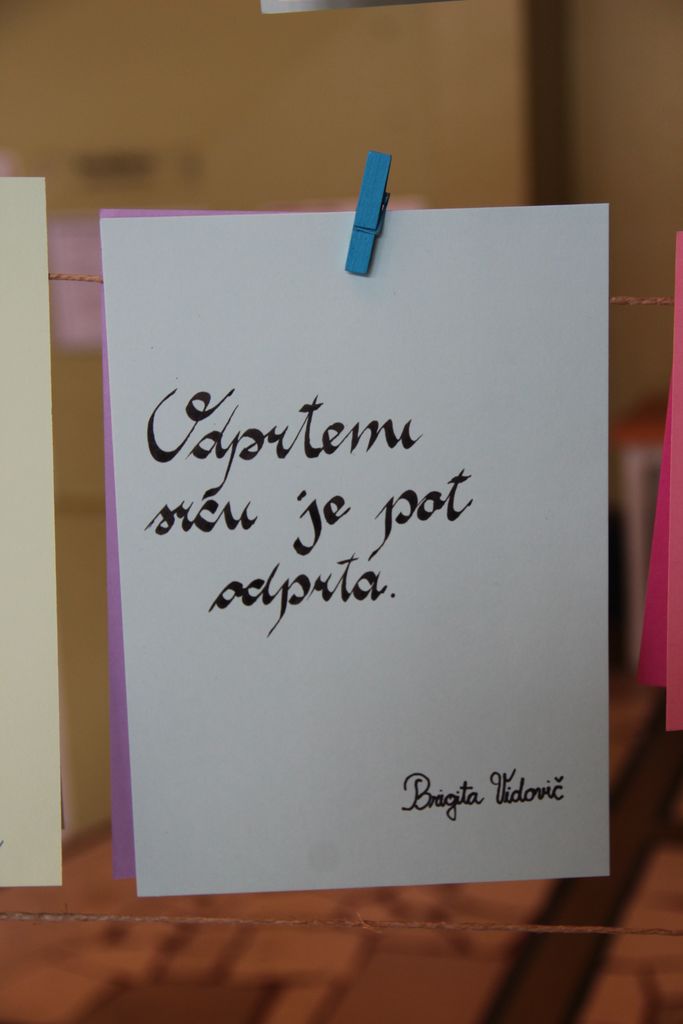 Odprtemu
srcu je pot
odprta.
Brigita Vidovič